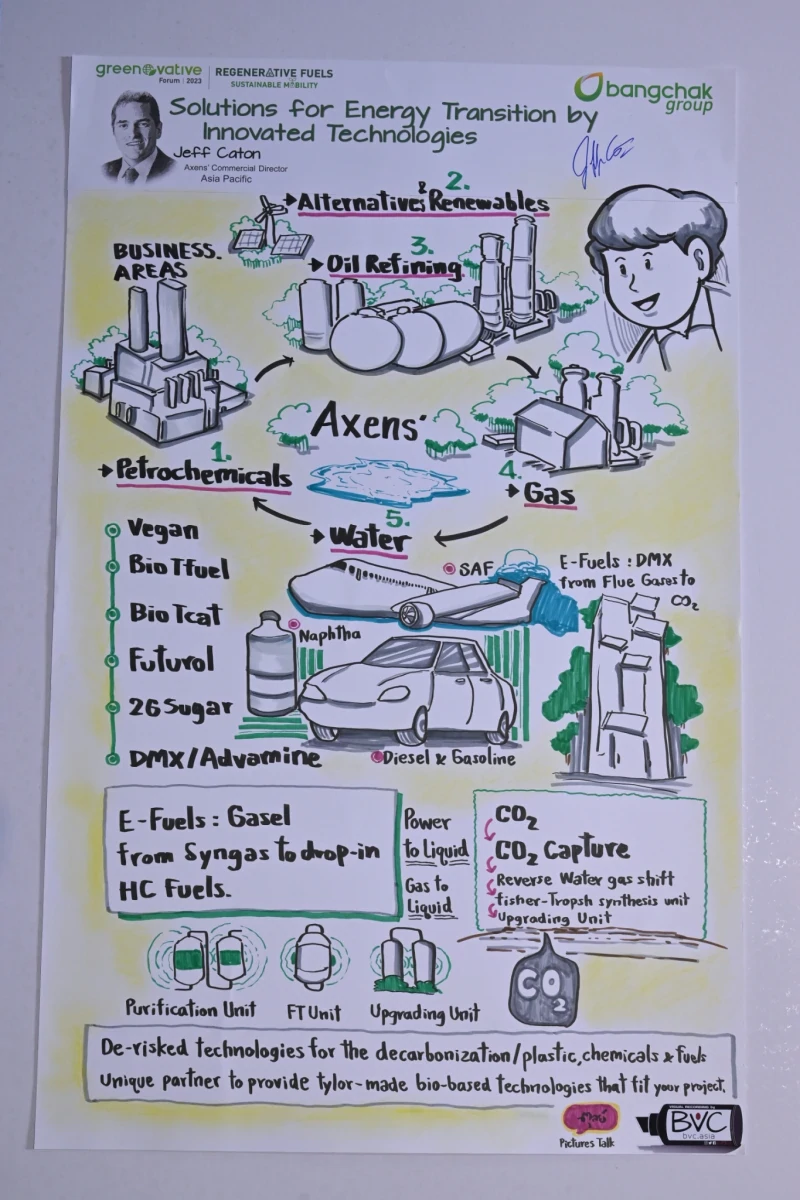 greenovative
Forum | 2023
REGENERATIVE FUELS
SUSTAINABLE MOBILITY
bangchak
group
Solutions for Energy Transition by
Innovated Technologies
Jeff Caton
Axens' Commercial Director
Asia Pacific
2.
Alternatives & Renewables
BUSINESS.
AREAS
3.
Oil Refining
Axens'
1.
Petrochemicals
4.
Gas
5.
Water
Vegan
Bio Tfuel
Bio Tcat
Futurol
26 Sugar
DMX/Advamine
SAF
Naphtha
Diesel & Gasoline
E-Fuels : DMX
from Flue Gases to
CO2
E-Fuels : Gasel
from Syngas to drop-in
HC Fuels.
Power
to Liquid
Gas to
Liquid
CO2
CO2 Capture
Reverse Water gas shift
fisher-Tropsh synthesis unit
Upgrading Unit
Purification Unit
FT Unit
Upgrading Unit
CO2
De-risked technologies for the decarbonization/plastic,chemicals & fuels
Unique partner to provide tylor-made bio-based technologies that fit your project.
Pictures Talk
BVC
bvc.asia